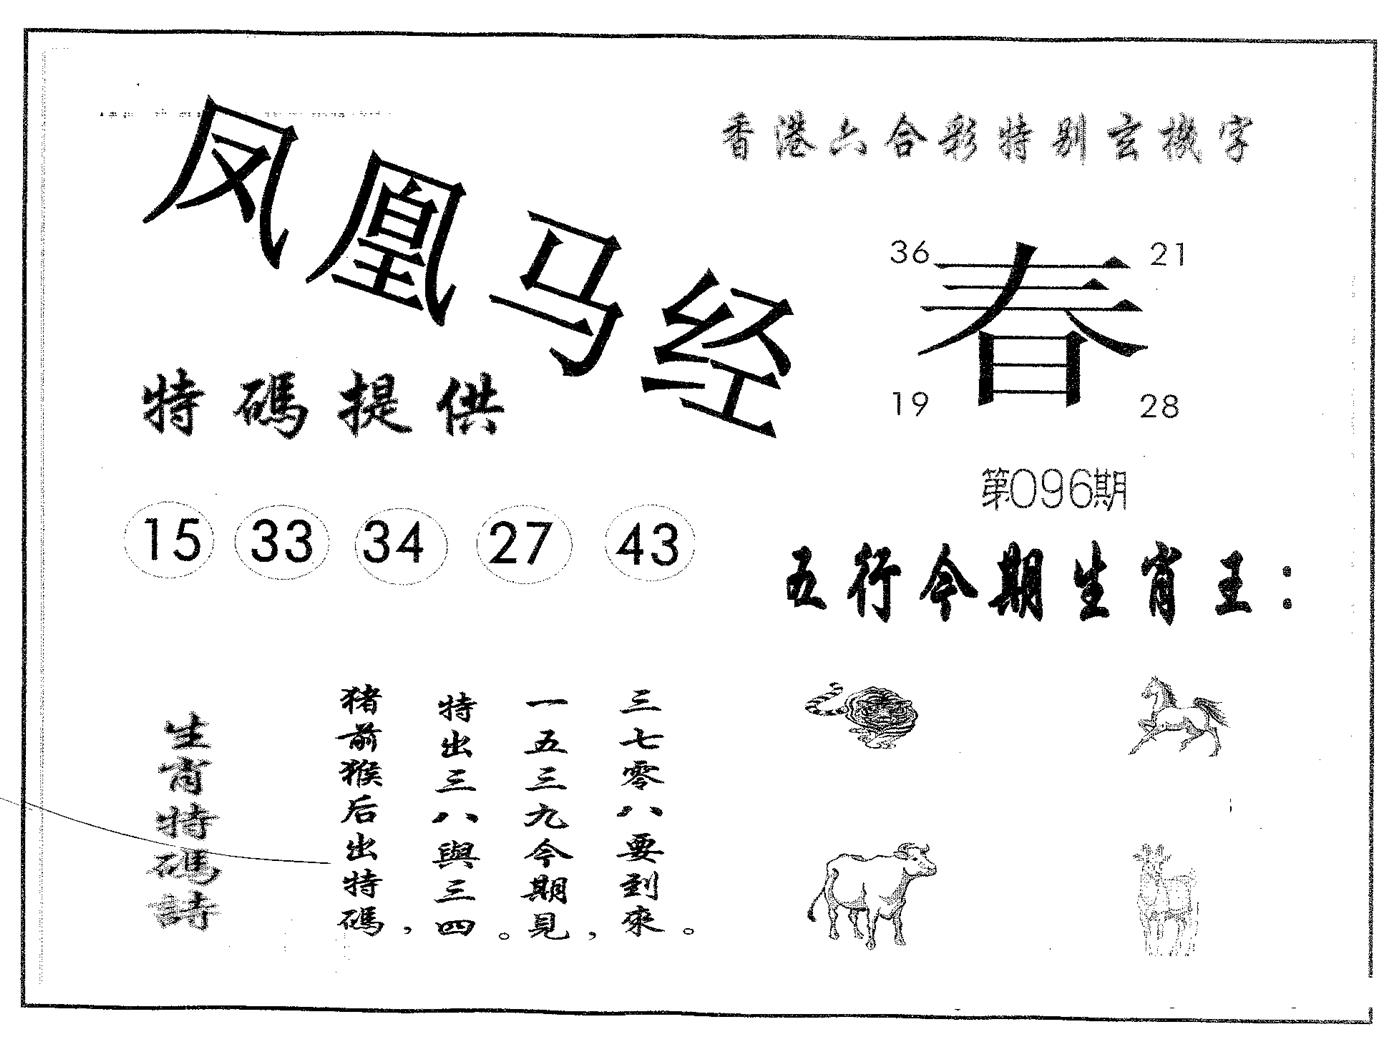 香港六合彩特别玄機字
凤凰马经
36 21
春
19 28
特碼提供
第096期
15 33 34 27 43
五行今期生肖王：
生肖特碼詩
猪前猴后出特碼，
特出三八與三四。
一五三九今期見，
三七零八要到來。